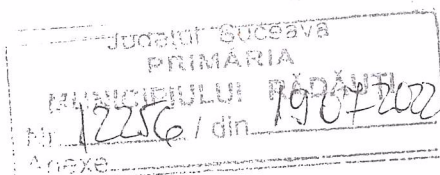 Județul Suceava
PRIMĂRIA
MUNICIPIULUI RĂDĂUȚI
Nr. 12256 / din 19 07 2022
Anexe